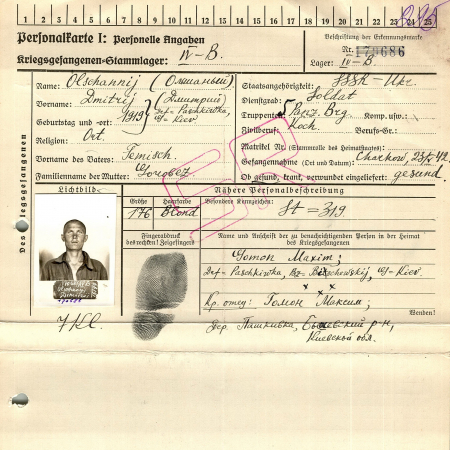 1 2 3 4 5 6 7 8 9 10 11 12 13 14 15 16 17 18 19 20 21 22 23 24 25
Personalkarte I: Personelle Angaben
Beschriftung der Erkennungsmarke
Kriegsgefangenen-Stammlager: IV-B.
Nr.
Lager: IV-B.
Des Kriegsgefangenen
Name: Olschannij (Ольшаный)
Vorname: Dmitrij (Дмитрий)
Geburtstag und -ort: 1919 Df- Paschkiwka,
Kiew
Religion: Ort.
Vorname des Vaters: Temisch.
Familienname der Mutter:
Staatsangehörigkeit: SSSR - Ukr.
Dienstgrad: Soldat
Truppenteil: 5 Panz. Brg. Komp. usw.:
Zivilberuf: Koch Berufs-Gr.:
Matrikel Nr. (Stammrolle des Heimatstaates):
Gefangennahme (Ort und Datum): Charkow, 25/5 42.
Ob gesund, krank, verwundet eingeliefert: gesund.
Lichtbild
Nähere Personalbeschreibung
Größe Haarfarbe Besondere Kennzeichen:
176 Blond St = 319
Fingerabdruck
des rechten! Zeigefingers
Name und Anschrift der zu benachrichtigenden Person in der Heimat
des Kriegsgefangenen
Gomon Maxim;
Df- Paschkiwka, Kiew.
Кр. отец: Гомон Максим;
Wenden!
7 Kl.
дер. Пашкивка, р-н,
Киевской обл.